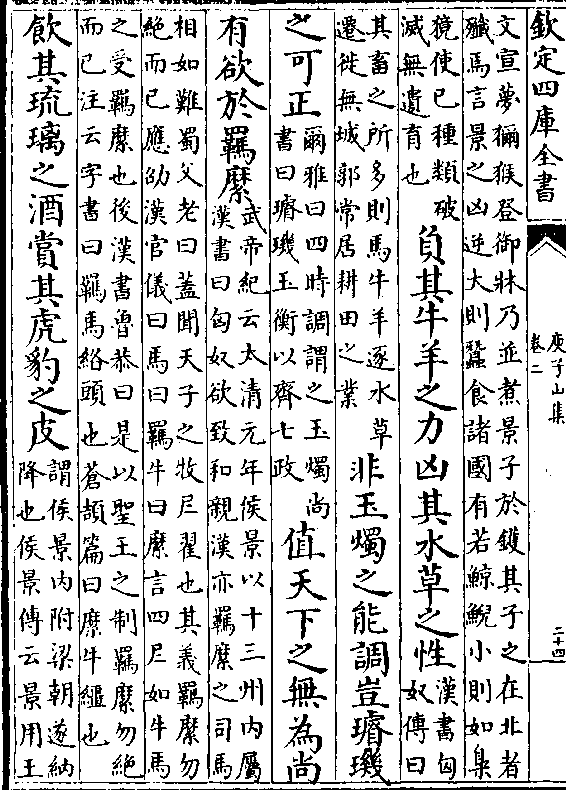 欽定四庫全書
庾子山集
卷二
二十四
文宣夢獮猴登御牀乃並煮景子於鑊其子之在北者
殲馬言景之凶逆大則蠶食諸國有若鯨鯢小則如梟
獍使已種類破
滅無遺育也
負其牛羊之力凶其水草之性
漢書匈
奴傳曰
其畜之所多則馬牛羊逐水草
遷徙無城郭常居耕田之業
非玉燭之能調豈璿璣
之可正
爾雅曰四時調謂之玉燭尚
書曰璿璣玉衡以齊七政
值天下之無為尚
有欲於羈縻
武帝紀云太清元年侯景以十三州内屬
漢書曰匈奴欲致和親漢亦羈縻之司馬
相如難蜀父老曰蓋聞天子之牧𡰥翟也其義羈縻勿
絶而已應劭漢官儀曰馬曰羈牛曰縻言四𡰥如牛馬
之受羈縻也後漢書魯恭曰是以聖王之制羈縻勿絶
而已注云字書曰羈馬絡頭也蒼頡篇曰縻牛韁也
飲其琉璃之酒賞其虎豹之皮
謂侯景内附梁朝遂納
降也侯景傳云景用王